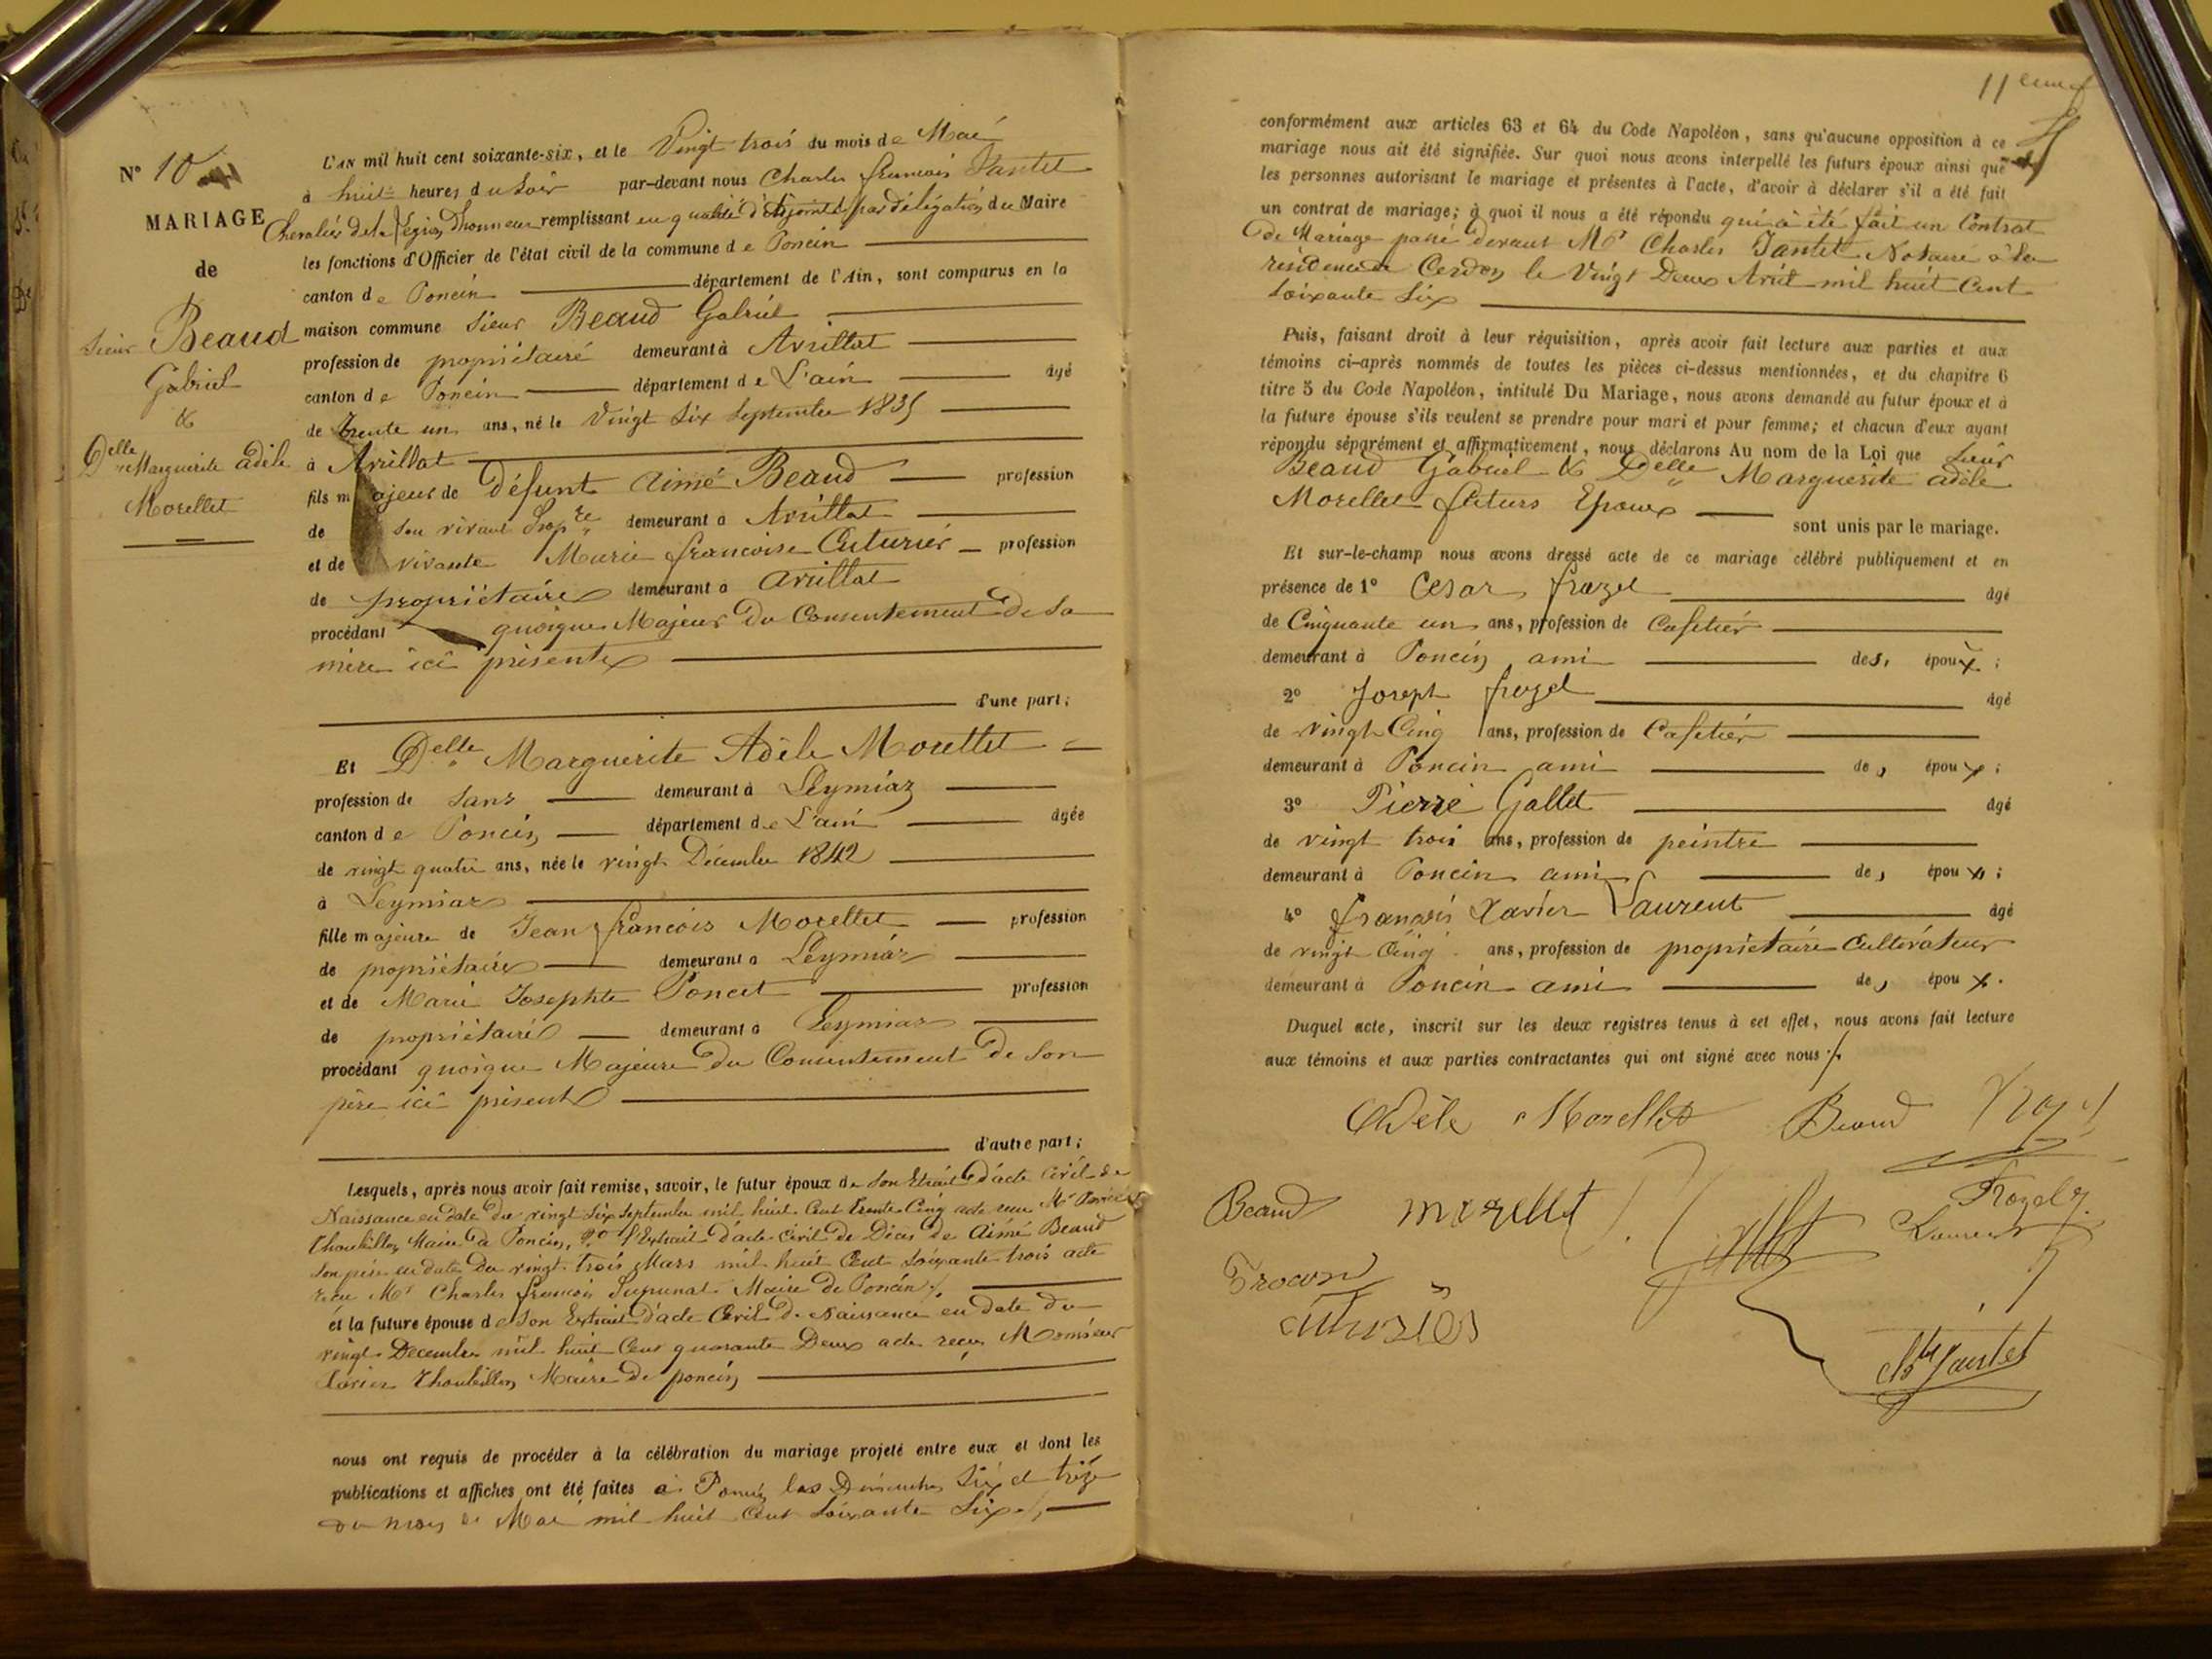 N° 10
MARIAGE
de
Sieur Beaud
Gabriel
&
Delle Marguerite Adèle
Morellet
L'AN mil huit cent soixante-six, et le Vingt trois du mois de Mai
à huit heures du soir par-devant nous Charles françois Jantet
Chevalier de la Légion D'honneur remplissant en qualité d'Adjoint & par délégation du Maire
les fonctions d'Officier de l'état civil de la commune de Poncin
canton de Poncin département de l'Ain, sont comparus en la
maison commune Sieur Beaud Gabriel
profession de propriétaire demeurant à Avrillat
canton de Poncin département de L'ain âgé
de trente un ans, né le Vingt Six Septembre 1835
à Avrillat
fils majeur de Défunt Aimé Beaud profession
de son vivant Propre demeurant à Avrillat
et de vivante Marie francoise Cuturier profession
de propriétaire demeurant à avrillat
procédant quoique Majeur Du Consentement De Sa
mère ici présente
d'une part;
Et Delle Marguerite Adèle Morellet
profession de Sans demeurant à Leymiaz
canton de Poncin département de L'ain âgée
de vingt quatre ans, née le vingt Décembre 1842
à Leymiaz
fille majeure de Jean françois Morellet profession
de propriétaire demeurant à Leymiaz
et de Marie Josephte Poncet profession
de propriétaire demeurant à Leymiaz
procédant quoique Majeure Du Consentement De Son
père ici présent
d'autre part;
Lesquels, après nous avoir fait remise, savoir, le futur époux de Son Extrait D'acte Civil de
Naissance en date Du vingt Six Septembre mil huit Cent trente Cinq acte recu Mr
Maire De Poncin, 2° l'Extrait D'acte Civil De Décès De Aimé Beaud
Son père en date Du vingt trois Mars mil huit Cent Soixante trois acte
recu Mr Charles francois Maire De Poncin
et la future épouse de Son Extrait D'acte Civil De Naissance en date Du
vingt Decembre mil huit Cent quarante Deux acte recu Monsieur
Maire De poncin
nous ont requis de procéder à la célébration du mariage projeté entre eux et dont les
publications et affiches ont été faites à Poncin les Dimanches Six et treize
Du mois de Mai mil huit Cent Soixante Six
11eme
conformément aux articles 63 et 64 du Code Napoléon, sans qu'aucune opposition à ce
mariage nous ait été signifiée. Sur quoi nous avons interpellé les futurs époux ainsi que
les personnes autorisant le mariage et présentes à l'acte, d'avoir à déclarer s'il a été fait
un contrat de mariage; à quoi il nous a été répondu qui à été fait un Contrat
De Mariage passé Devant Mr Charles Jantet Notaire à la
résidence de Cerdon le Vingt Deux Avril mil huit Cent
Soixante Six
Puis, faisant droit à leur réquisition, après avoir fait lecture aux parties et aux
témoins ci-après nommés de toutes les pièces ci-dessus mentionnées, et du chapitre 6
titre 5 du Code Napoléon, intitulé Du Mariage, nous avons demandé au futur époux et à
la future épouse s'ils veulent se prendre pour mari et pour femme; et chacun d'eux ayant
répondu séparément et affirmativement, nous déclarons Au nom de la Loi que Sieur
Beaud Gabriel & Delle Marguerite adèle
Morellet futurs Epoux sont unis par le mariage.
Et sur-le-champ nous avons dressé acte de ce mariage célébré publiquement et en
présence de 1° Cesar frozel âgé
de Cinquante un ans, profession de Cafetier
demeurant à Poncin ami des époux;
2° Joseph frozel âgé
de vingt Cinq ans, profession de Cafetier
demeurant à Poncin ami des époux;
3° Pierre Gallet âgé
de vingt trois ans, profession de peintre
demeurant à Poncin ami des époux;
4° françois Xavier Laurent âgé
de vingt Cinq ans, profession de propriétaire Cultivateur
demeurant à Poncin ami des époux.
Duquel acte, inscrit sur les deux registres tenus à cet effet, nous avons fait lecture
aux témoins et aux parties contractantes qui ont signé avec nous
Adèle Morellet Beaud
Beaud Morellet Frozel
Laurent
Jantet